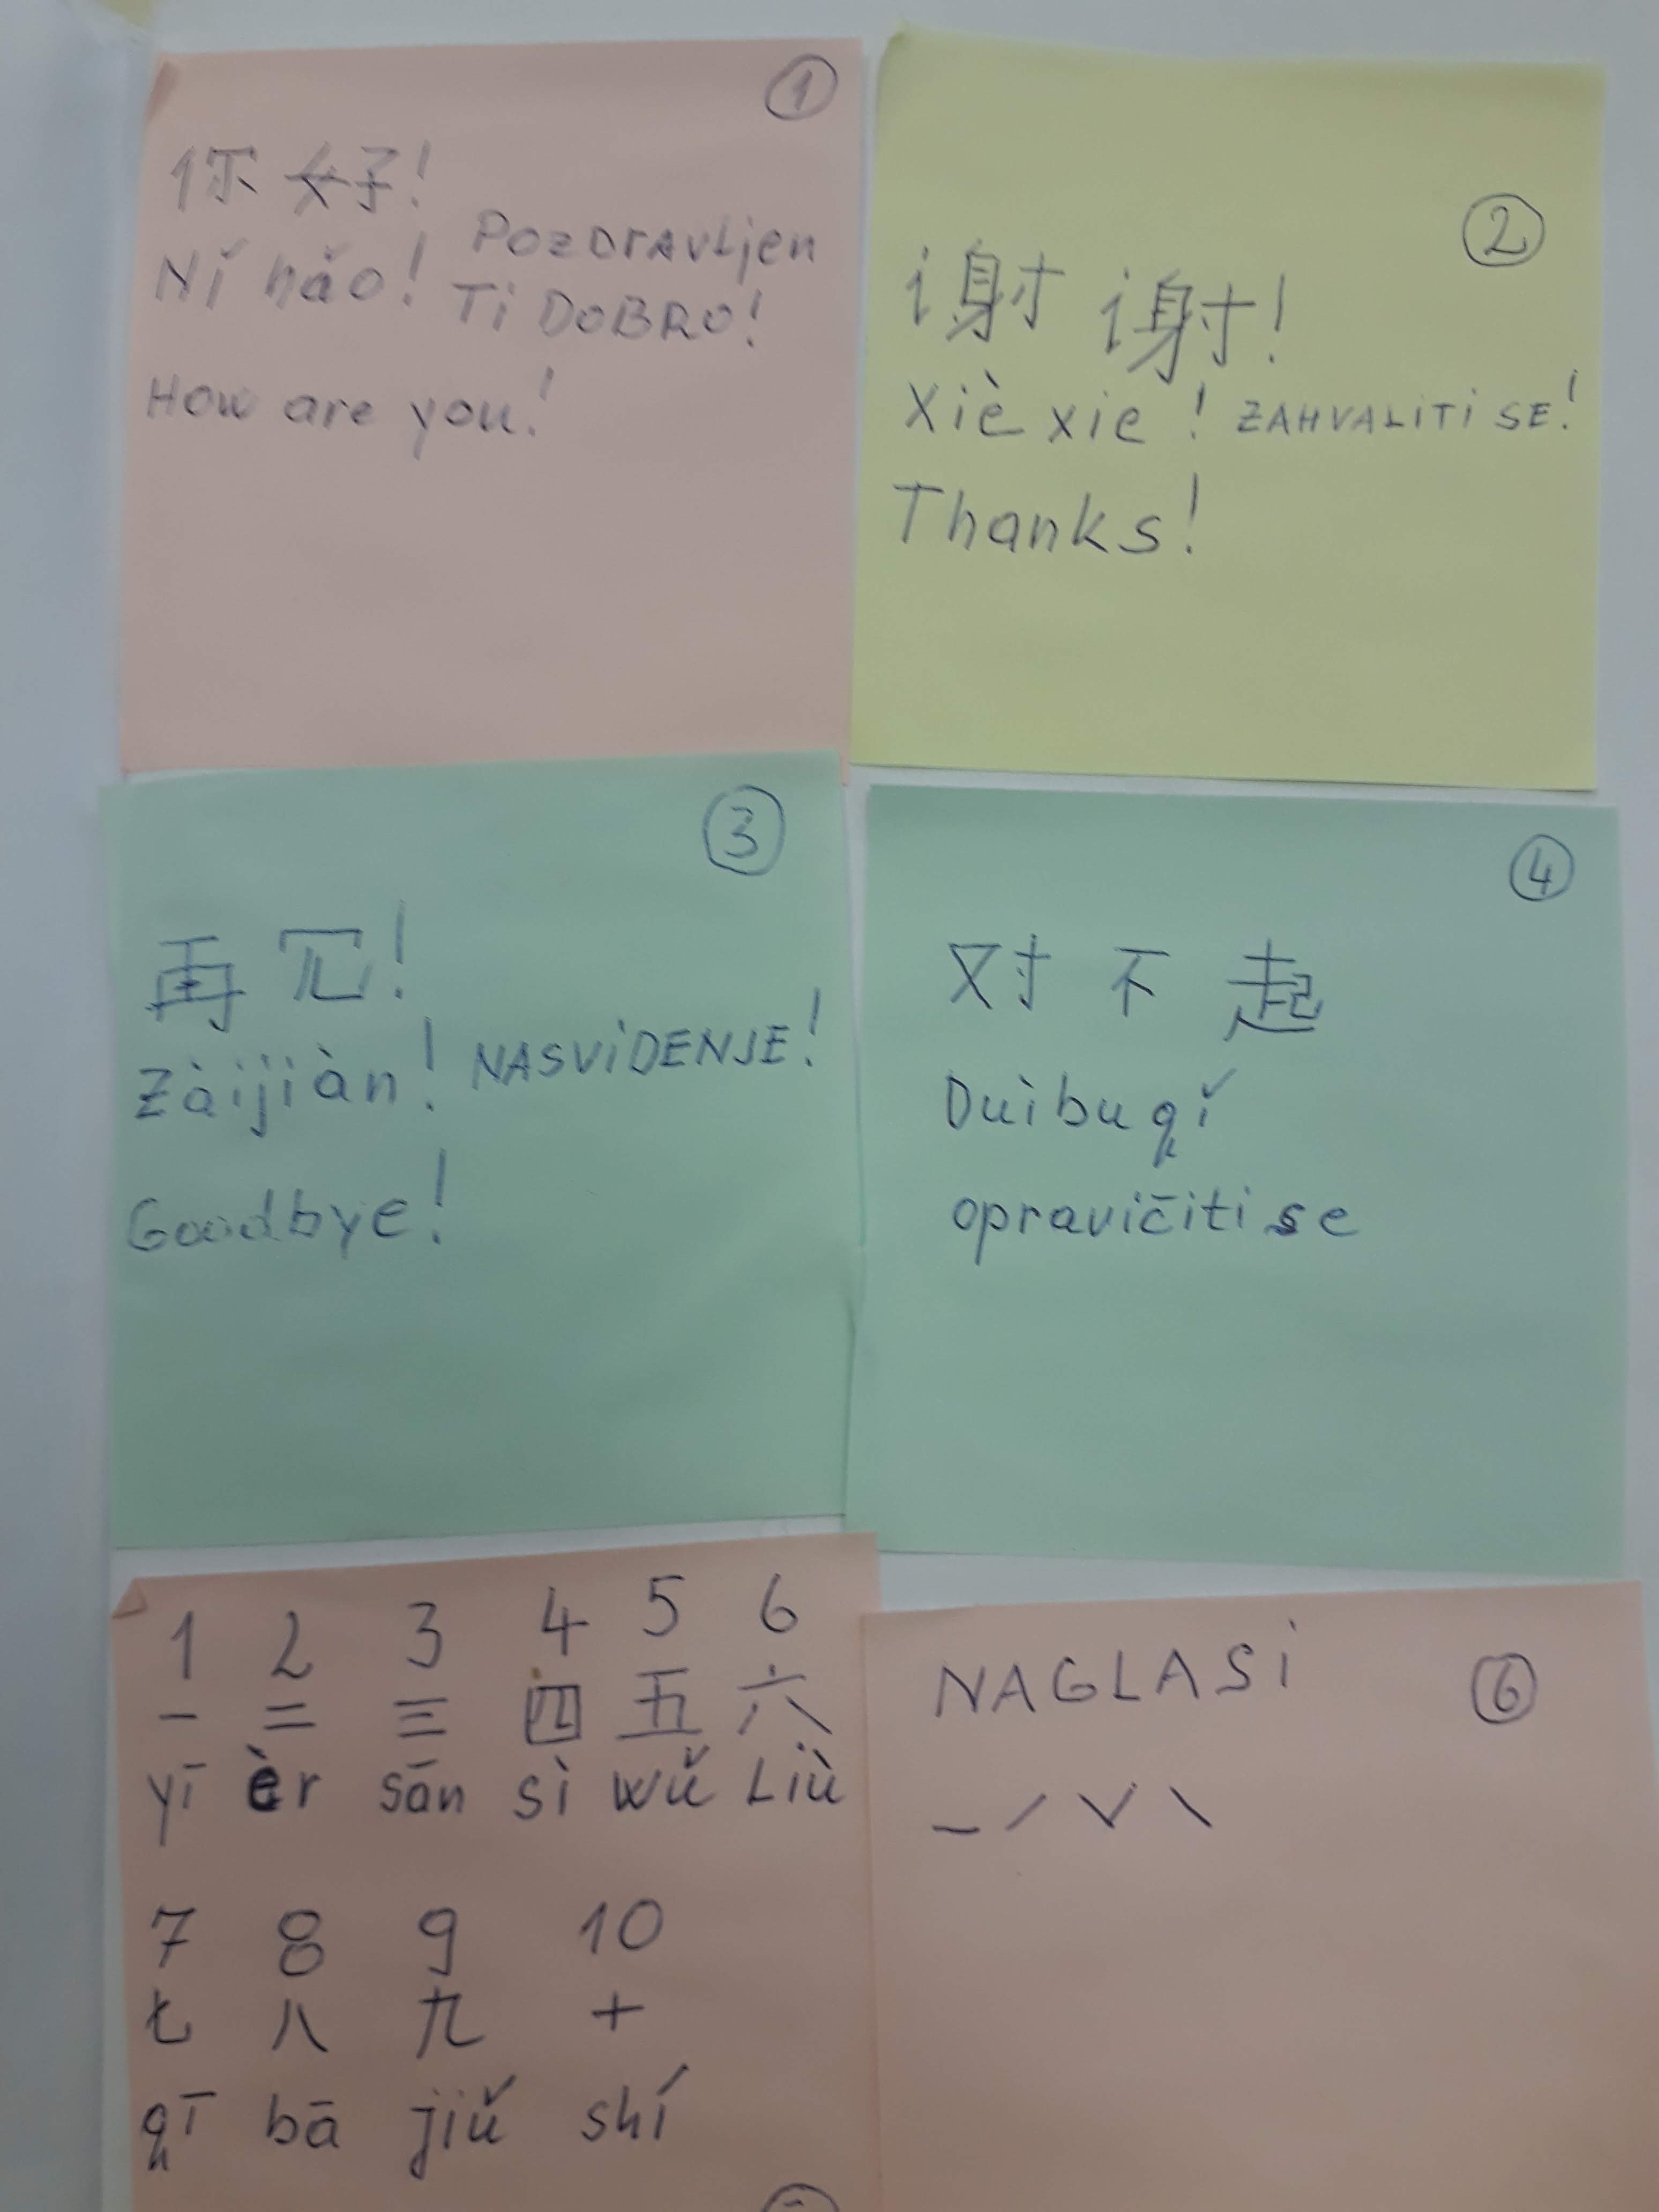 1
你好!
Nǐ hǎo! Pozdravljen
Ti DOBRO!
How are you!
2
谢谢!
Xièxie! ZAHVALITI SE!
Thanks!
3
再见!
Zàijiàn! NASVIDENJE!
Goodbye!
4
对不起
Duìbuqǐ
opravičiti se
1 2 3 4 5 6
一 二 三 四 五 六
yī èr sān sì wǔ Liù
7 8 9 10
七 八 九 十
qī bā jiǔ shí
NAGLASI 6
ˉ ˊ ˇ ˋ